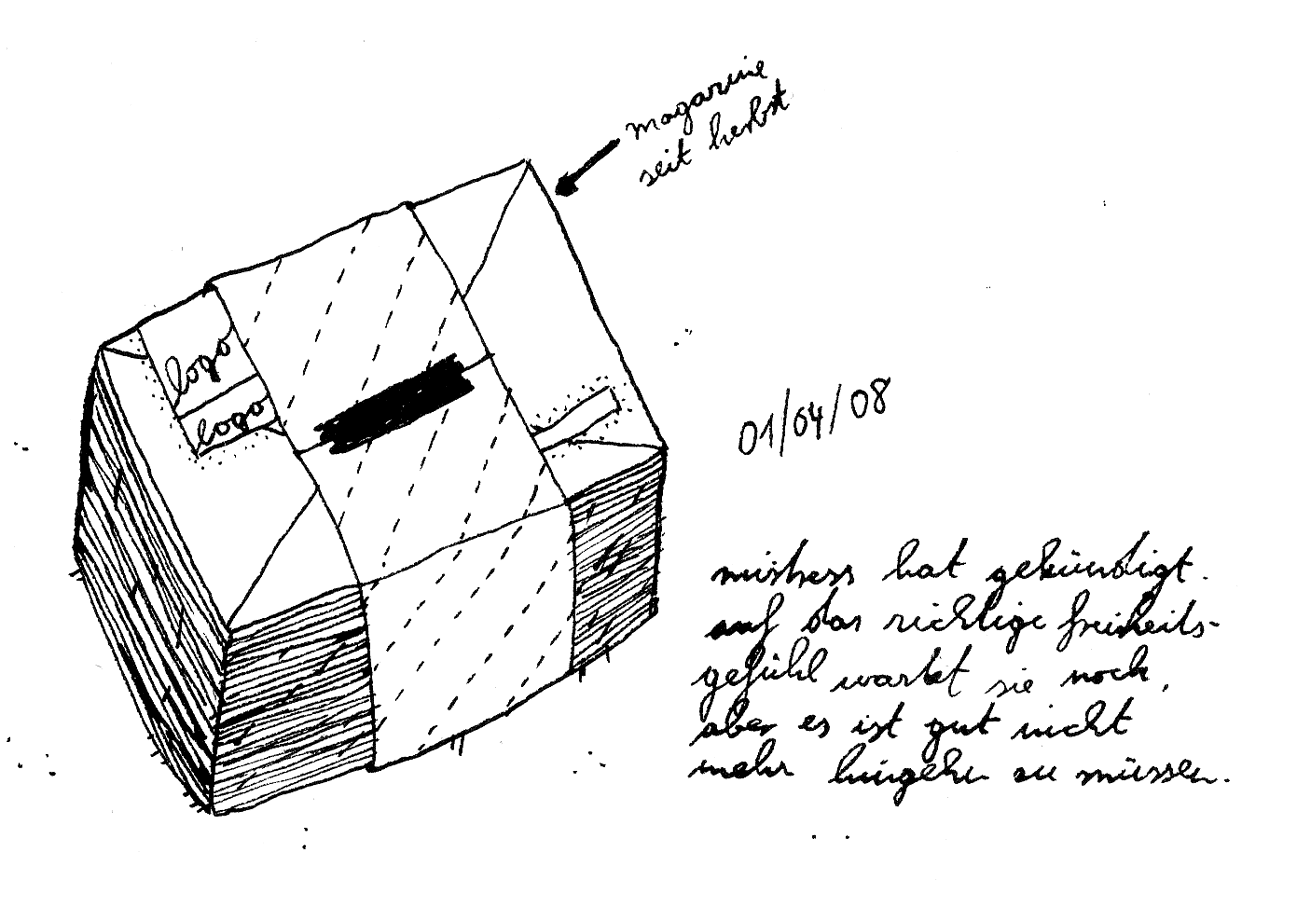 magazine
seit herbst
logo
logo
01/04/08
mistress hat gekündigt.
auf das richtige freiheits-
gefühl wartet sie noch,
aber es ist gut nicht
mehr hingehn zu müssen.